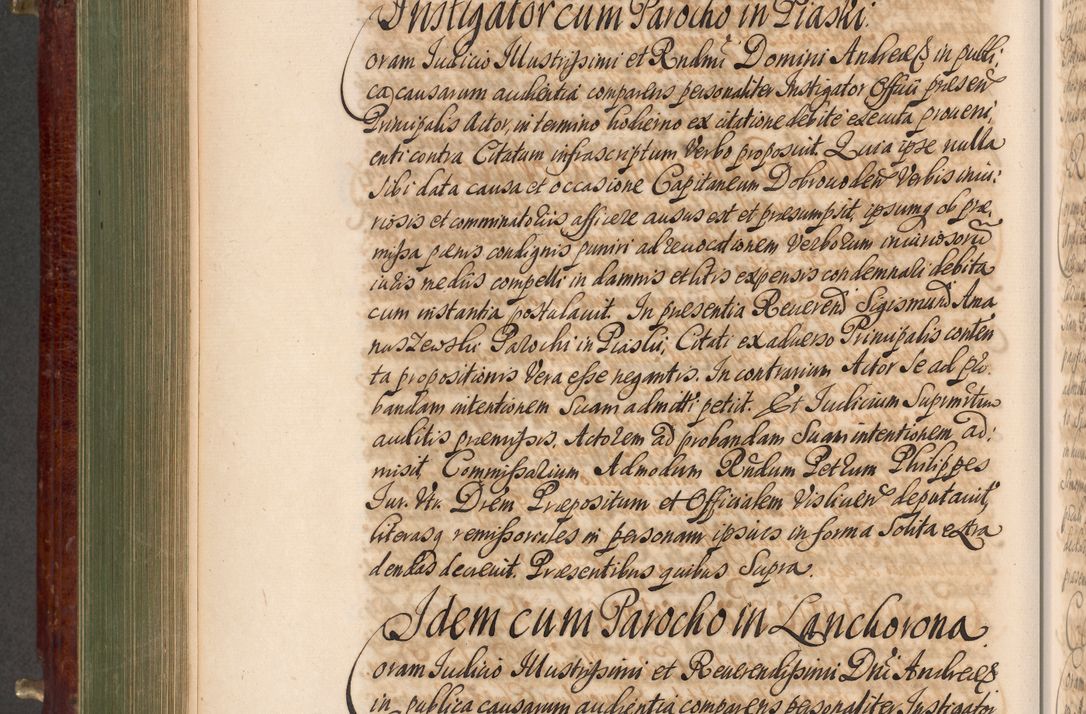 Instigator cum Parocho in Piaski.
oram Iudicio Illustrissimi et Rndmi Domini Andreæ & in publi:
ca causarum audientia comparens personaliter Instigator Officii præsen
Principalis Actor, in termino hodierno ex citatione debite executa proueni,
enti contra Citatum infrascriptum Verbo proposuit. Quia ipse nulla
sibi data causa et occasione Capitaneum Dobrouoden Verbis iniu:
riosis et comminatoriis afficere ausus est et præsumpsit, ipsumq ob præ,
missa pænis condignis puniri ad reuocationem Verborum iniuriosoru
iuris mediis compelli in damnis et litis expensis condemnali debita
cum instantia postulauit. In præsentia Reuerend Sigismund Ana
naszewski Parochi in Piaski, Citati ex aduerso Principalis conten
ta propositionis Vera esse negantis. In contrarium Actor se ad pro
bandam intentionem Suam admitti petiit. Et Iudicium Suprmitum
auditis præmissis. Actorem ad probandam Suam intentionem ad:
misit Commissarium Admodum Rndum Petrum Philippes
Iur. Vtr. Drem Præpositum et Officialem Visliuen deputauit,
literasq remissoriales in personam ipsius in forma Solita extra
dendas decreuit. Præsentibus quibus Supra.
Idem cum Parocho in Lanckorona
oram Iudicio Illustrissimi et Reuerendissimi Dni Andreæ &
in publica causarum audientia comparens personaliter Instigator